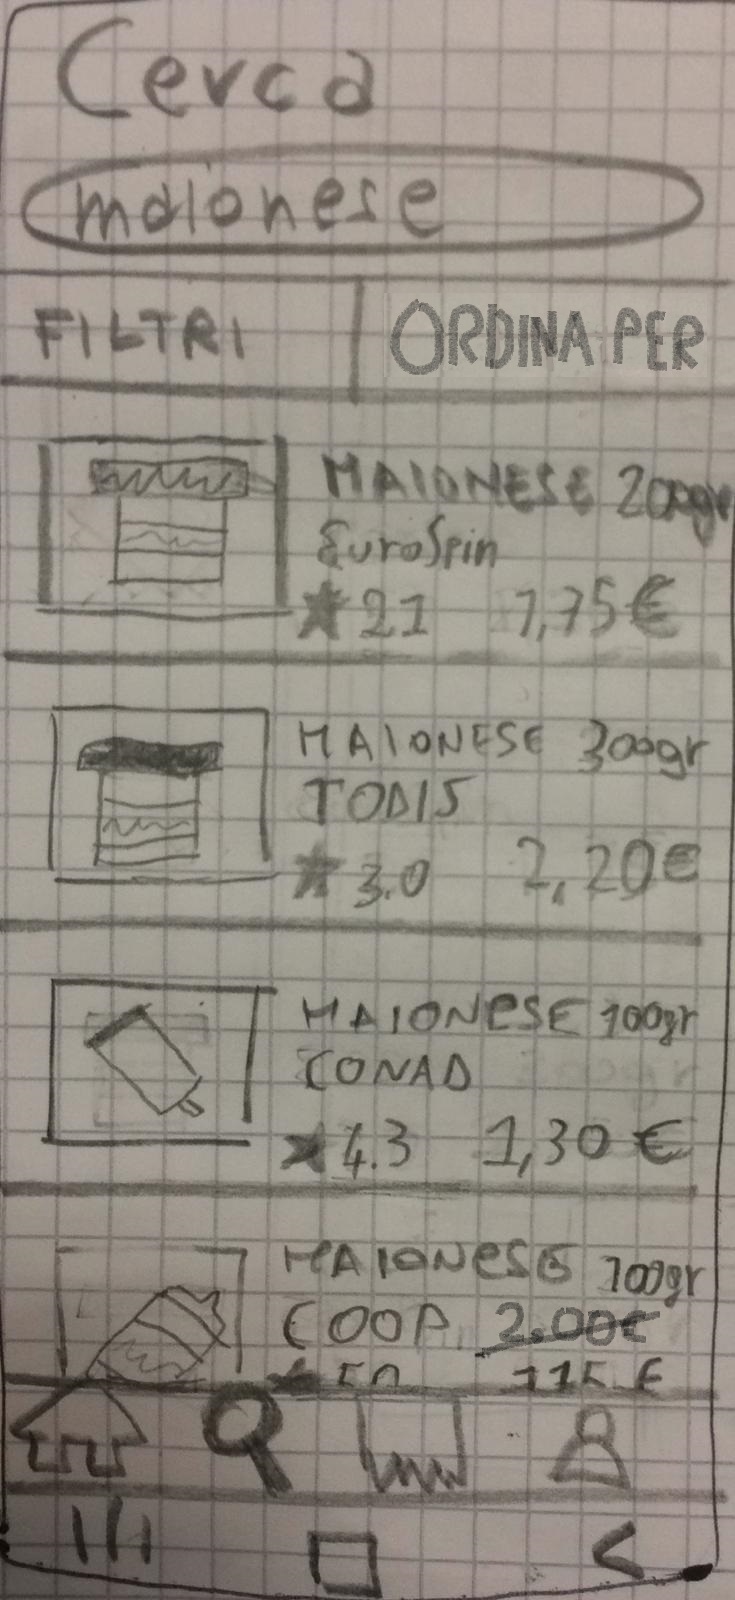 Cerca
maionese
FILTRI ORDINA PER
MAIONESE 200gr
EuroSpin
2.1 1,75€
MAIONESE 300gr
TODIS
3.0 2,20€
MAIONESE 100gr
CONAD
4.3 1,30€
MAIONESE 100gr
COOP 2.00€